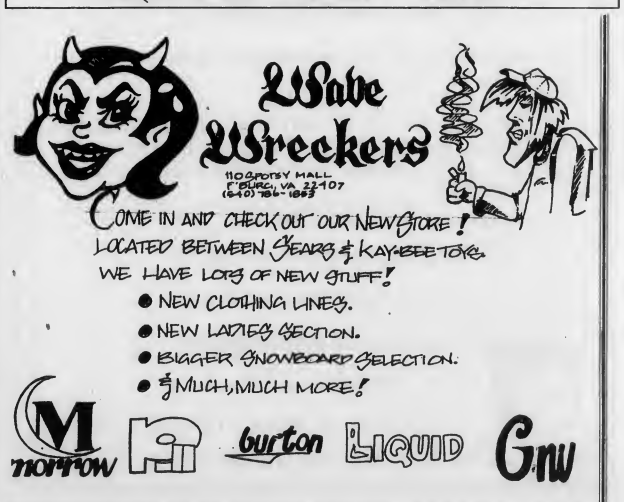 Wave
Wreckers
110 SPOTSY MALL
F'BURG, VA 22407
(540) 786-1853
COME IN AND CHECK OUT OUR NEW STORE!
LOCATED BETWEEN SEARS & KAY-BEE TOYS.
WE HAVE LOTS OF NEW STUFF!
• NEW CLOTHING LINES.
• NEW LADIES SECTION.
• BIGGER SNOWBOARD SELECTION.
• & MUCH, MUCH MORE!
M
morrow
burton
LIQUID
Gnu